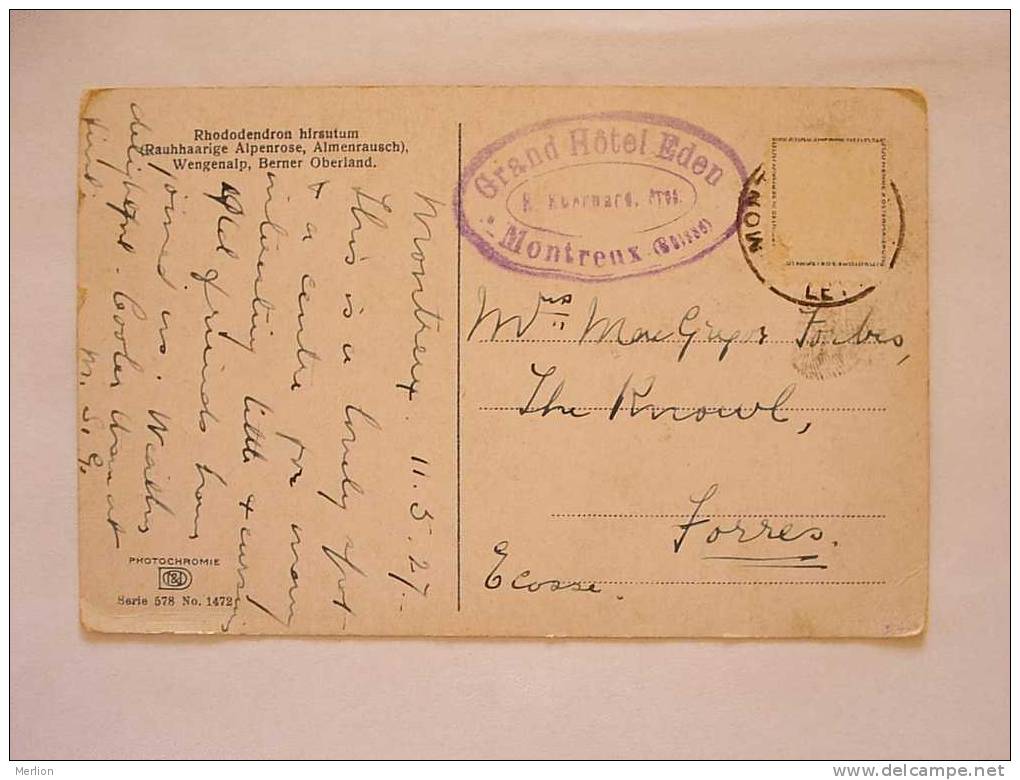 Rhododendron hirsutum
(Rauhhaarige Alpenrose, Almenrausch),
Wengenalp, Berner Oberland.
Grand Hôtel Eden
E. Eberhard, Prop.
Montreux (Suisse)
MONT
LE
Montreux. 11.5.27.
This is a lovely spot
& a centre for many
interesting little
friends from
joined us. Weather
delightful. Cooler than at
M. S. G.
Mrs MacGregor Forbes,
The Knowl,
Forres.
Ecosse.
PHOTOCHROMIE
Serie 578 No. 1472
Merlion
www.delcampe.net